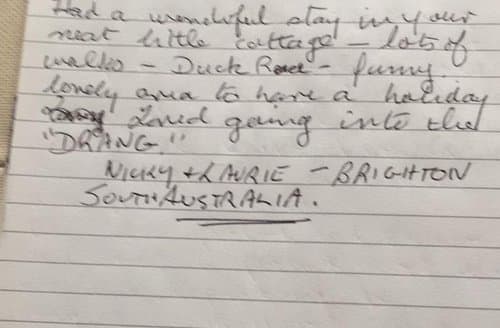 Had a wonderful stay in your
neat little cottage - lots of
walks - Duck Race - funny.
lovely area to have a holiday
Loved going into the
"DRANG."
NICKY + LAURIE - BRIGHTON
SOUTH AUSTRALIA.